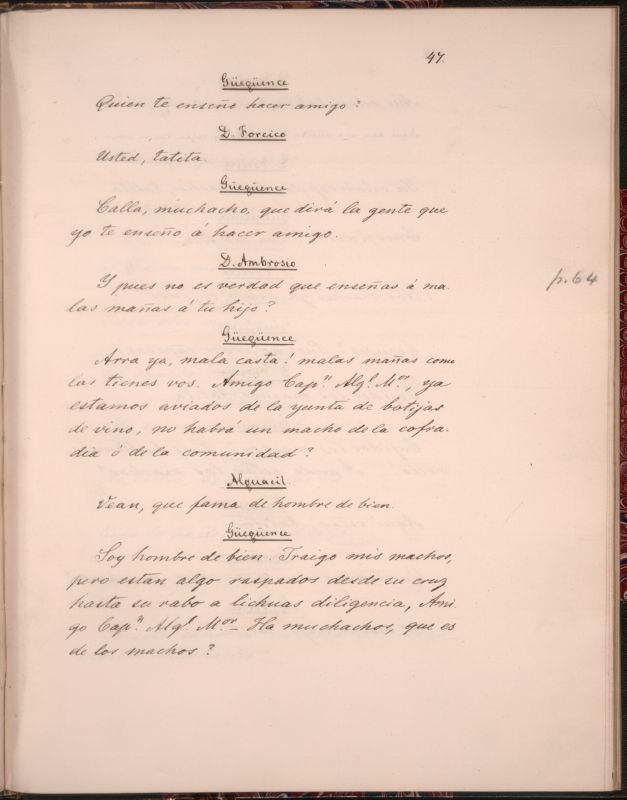 47.
Güegüence
Quien te enseño hacer amigo?
D. Forcico
Usted, tatita.
Güegüence
Calla, muchacho, que dirá la gente que
yo te enseño á hacer amigo.
D. Ambrosio
Y pues no es verdad que enseñas á ma-
las mañas á tu hijo?
p. 64
Güegüence
Arra ya, mala casta! malas mañas como
las tienes vos. Amigo Capⁿ Algˡ Mᵒʳ, ya
estamos aviados de la yunta de botijas
de vino, no habrá un macho de la cofra-
dia ó de la comunidad?
Alguacil
Vean, que fama de hombre de bien.
Güegüence
Soy hombre de bien. Traigo mis machos,
pero estan algo raspados desde su cruz
hasta su rabo a lichuas diligencia, Ami-
go Capⁿ Algˡ Mᵒʳ – Ha muchachos, que es
de los machos?